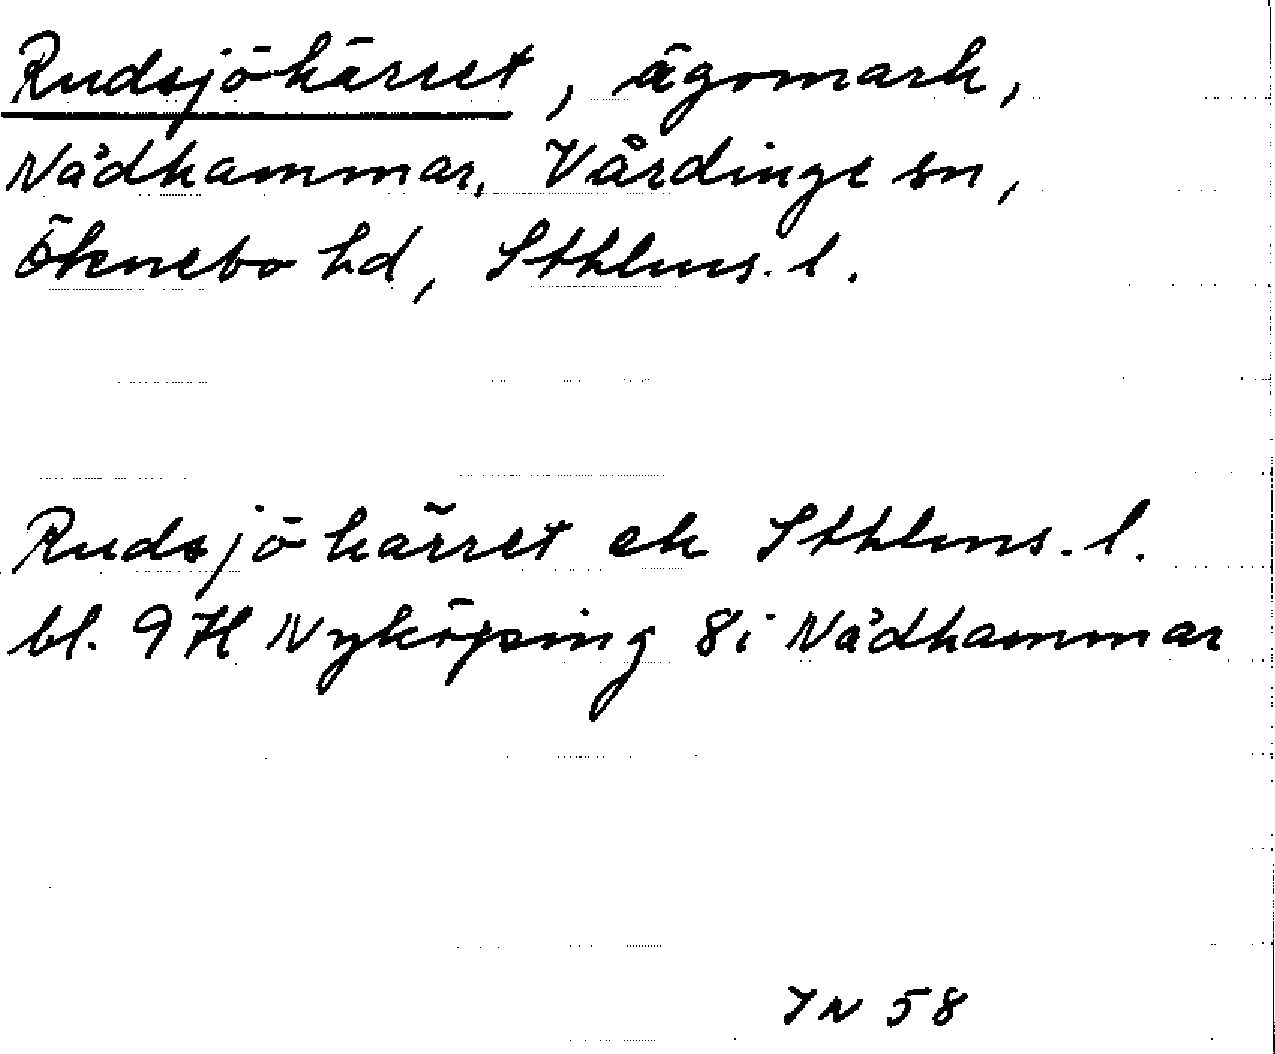 Rudsjökärret, ägomark,
Nådhammar, Vårdinge sn,
Öknebo hd, Sthlms. l.
Rudsjökärret ek Sthlms. l.
bl. 9 H Nyköping 8 i Nådhammar
IN 58